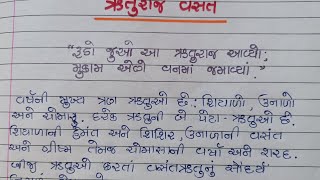 ઋતુરાજ વસંત
"રૂડો જુઓ આ ઋતુરાજ આવ્યો;
મુકામ એણે વનમાં જમાવ્યો."
વર્ષની મુખ્ય ત્રણ ઋતુઓ છે: શિયાળો, ઉનાળો
અને ચોમાસુ. દરેક ઋતુની બે પેટા-ઋતુઓ છે.
શિયાળાની હેમંત અને શિશિર, ઉનાળાની વસંત
અને ગ્રીષ્મ તેમજ ચોમાસાની વર્ષા અને શરદ.
બીજી ઋતુઓ કરતાં વસંતઋતુનું સૌંદર્ય